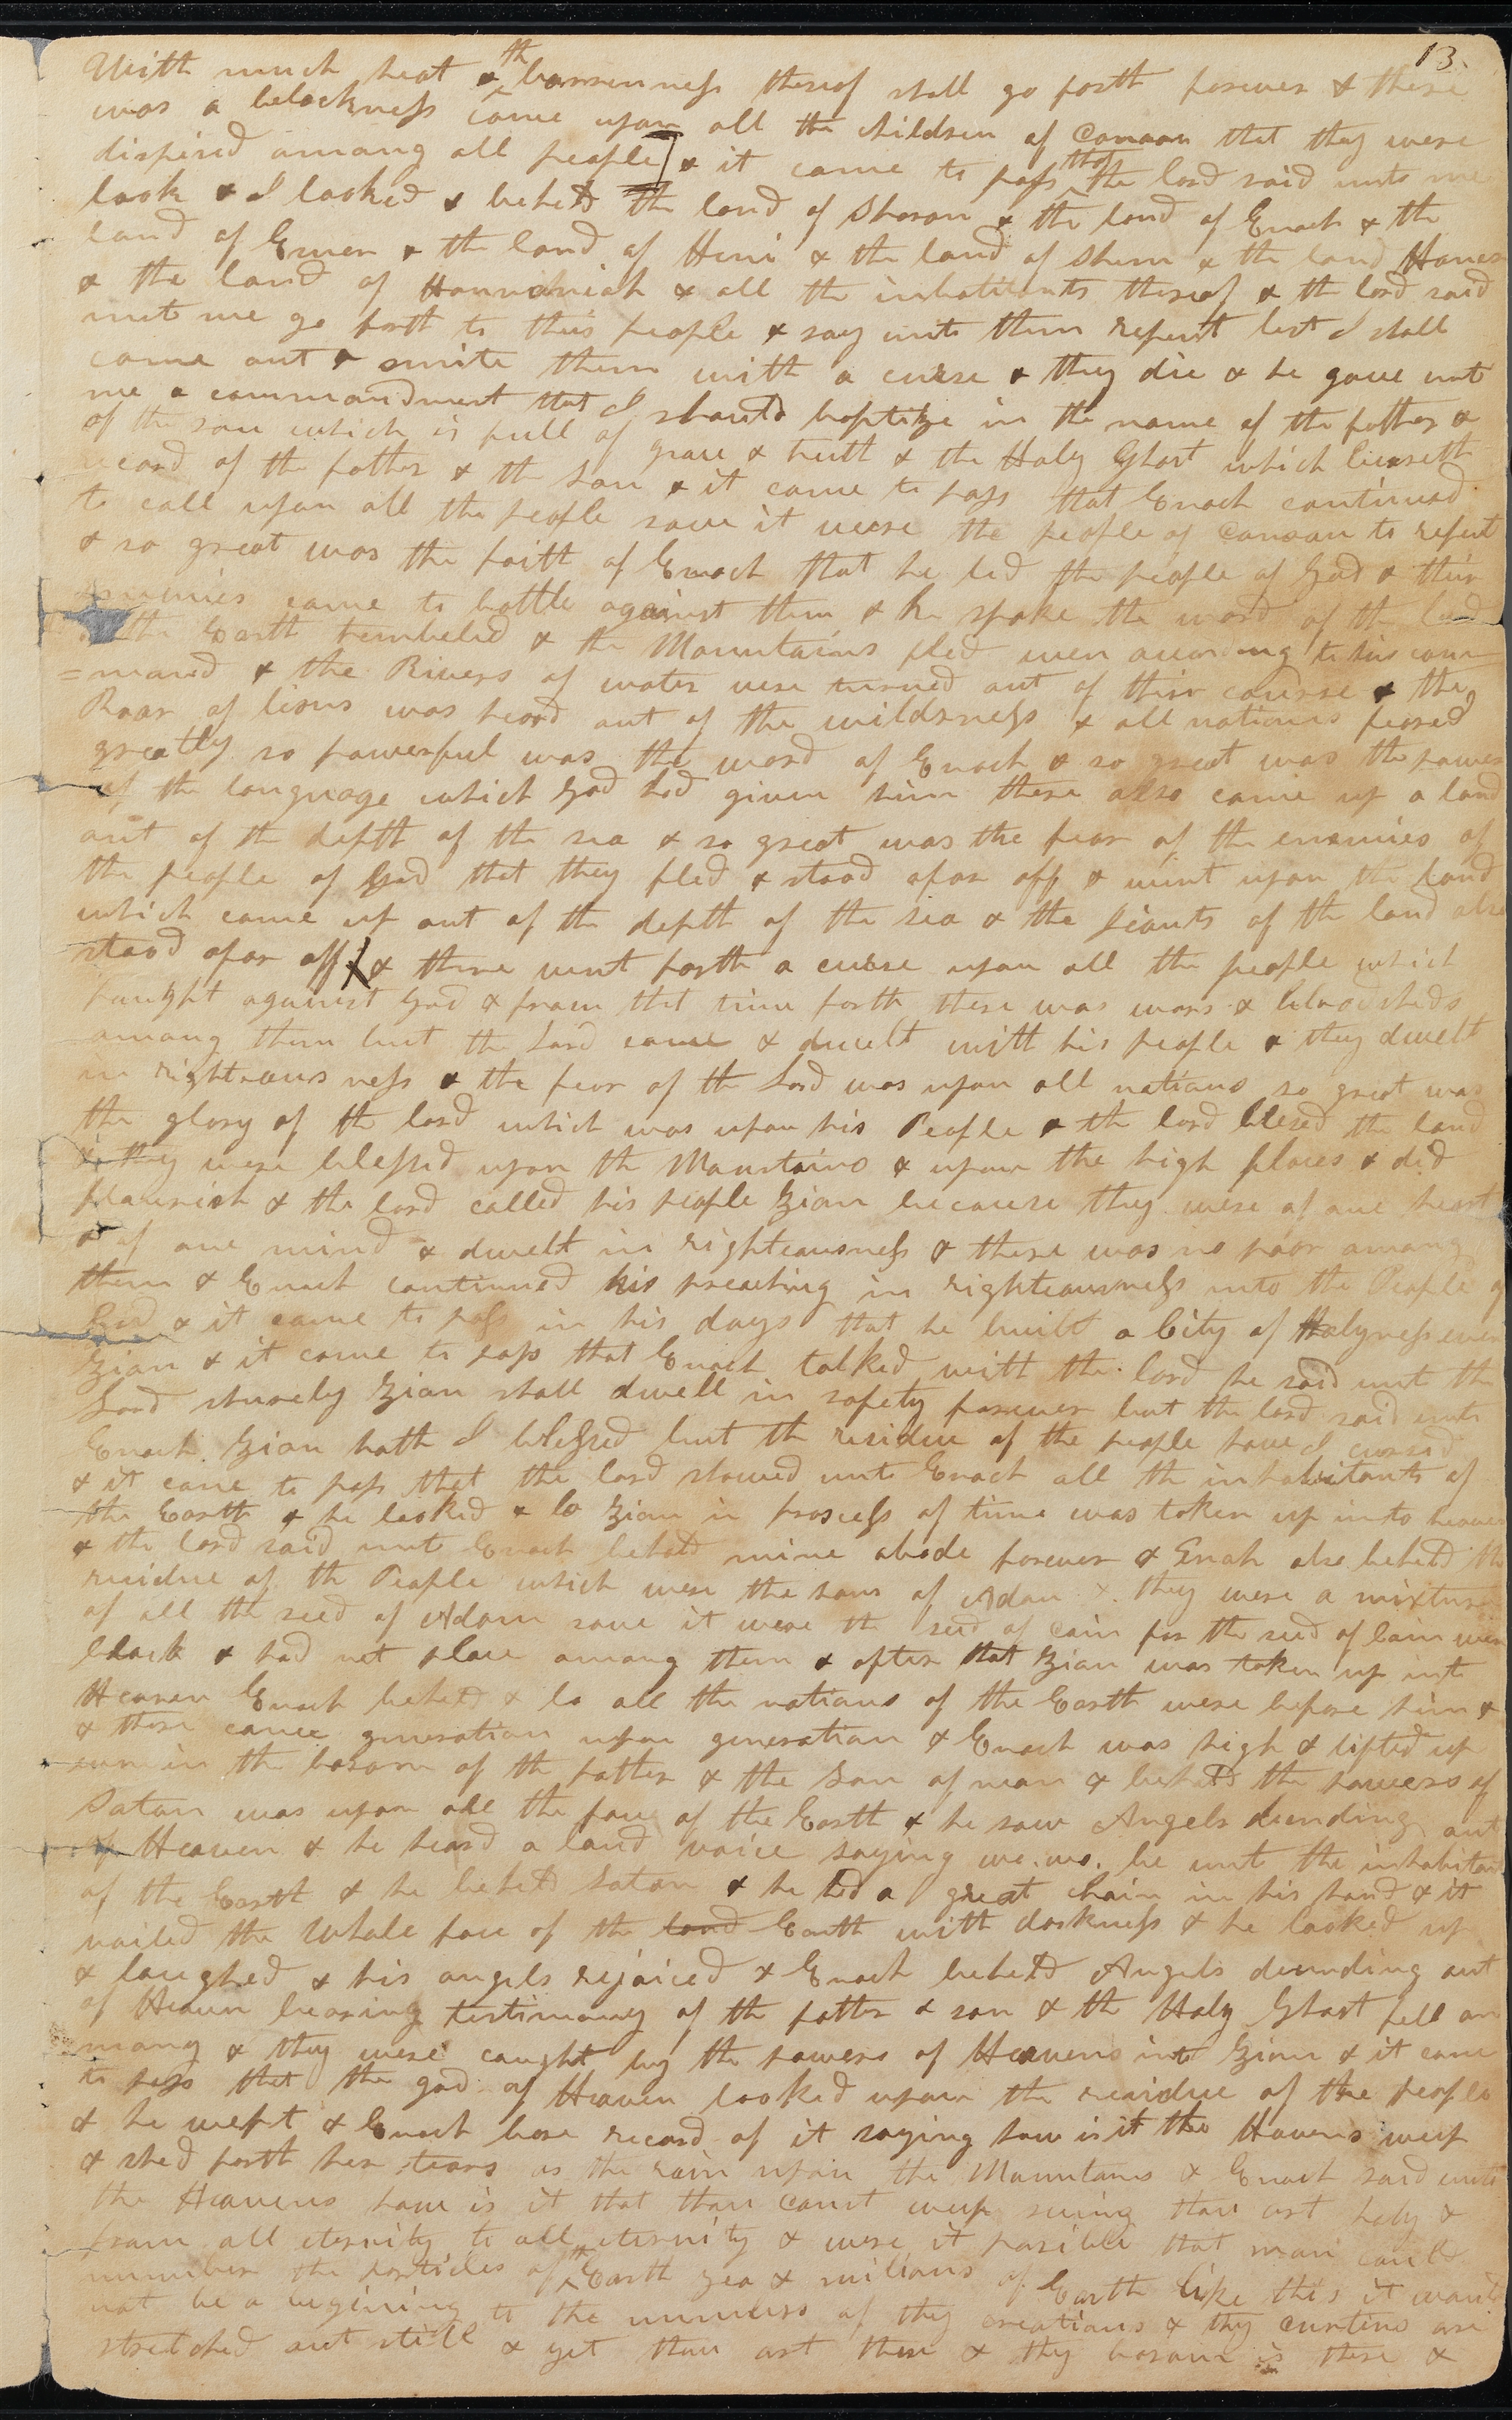 13.
With much heat & th barrenness thereof shall go forth forever & there
was a belackness came upon all the children of Canaan that they were
dispised among all people] & it came to pass that the lord said unto me
look & I looked & beheld the land of Sharon & the land of Enoch & the
land of Omner & the land of Heni & the land of Shem & the land Haner
& the land of Hannanniah & all the inhabitants thereof & the lord said
unto me go forth to this people & say unto them repent lest I shall
come out & smite them with a curse & they die & he gave unto
me a commandment that I should baptize in the name of the father &
of the son which is full of grace & truth & the Holy Ghost which beareth
record of the father & the Son & it came to pass that Enoch continued
to call upon all the people save it were the people of Canaan to repent
& so great was the faith of Enoch that he led the people of God & their
enemies came to battle against them & he spake the word of the lord
& the Earth trembeled & the Mountains fled even according to his com
=mand & the Rivers of water were turned out of their course & the
Roar of lions was heard out of the wilderness & all nations feared
greatly so powerful was the word of Enoch & so great was the power
of the language which God had given him there also came up a land
out of the depth of the sea & so great was the fear of the enemies of
the people of God that they fled & stood afar off & went upon the land
which came up out of the depth of the sea & the Jiants of the land also
stood afar off & there went forth a curse upon all the people which
faught against God & from that time forth there was wars & bloodsheds
among them but the Lord came & dwelt with his people & they dwelt
in righteousness & the fear of the Lord was upon all nations so great was
the glory of the lord which was upon his People & the lord blesed the land
& they were blessed upon the Mountains & upon the high places & did
flourish & the lord called his people Zion because they were of one heart
& of one mind & dwelt in righteousness & there was no poor among
them & Enoch continued his preaching in righteousness unto the People of
God & it came to pass in his days that he built a City of Holyness even
Zion & it came to pass that Enoch talked with the lord he said unto the
Lord shurely Zion shall dwell in safety forever but the lord said unto
Enoch Zion hath I blessed but the residue of the people have I cursed
& it came to pass that the lord shewed unto Enoch all the inhabitants of
the Earth & he looked & lo Zion in prosess of time was taken up into heaven
& the lord said unto Enoch behold mine abode forever & Enoh also beheld the
residue of the People which were the sons of Adam & they were a mixture
of all the seed of Adam save it were the seed of Cain for the seed of Cain were
black & had not place among them & after that Zion was taken up into
Heaven Enoch beheld & lo all the nations of the Earth were before him &
& there came generation upon generation & Enoch was high & lifted up
even in the bosom of the father & the Son of man & behold the powers of
Satan was upon all the face of the Earth & he saw Angels decending out
of Heaven & he heard a loud voice saying wo. wo. be unto the inhabitants
of the Earth & he beheld Satan & he had a great chain in his hand & it
vailed the whole face of the land Earth with darkness & he looked up
& laughed & his angels rejoiced & Enoch beheld Angels decending out
of Heaven bearing testimony of the father & son & the Holy Ghost fell on
many & they were caught by the powers of Heavens into Zion & it came
to pass that the god of Heaven looked upon the residue of the people
& he wept & Enoch bore record of it saying how is it the Havens weep
& shed forth her tears as the rain upon the Mountains & Enoch said unto
the Heavens how is it that thou canst weep seeing thou art holy &
from all eternity to all eternity & were it posible that man could
number the particles of the Earth yea & milions of Earth like this it would
not be a begining to the numbers of thy creations & thy curtins are
stretched out still & yet thou art there & thy bosom is there &